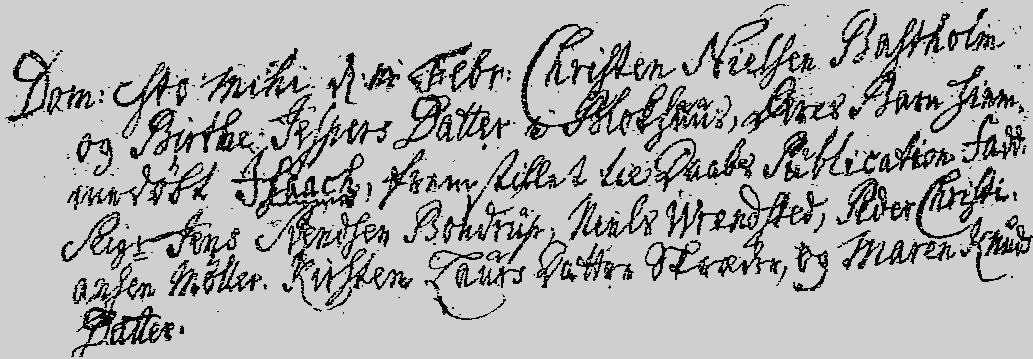 Dom: Esto mihi d. Febr: Christen Nielsen Bastholm
og Birthe Jespers Datter i Blokhuus, deres Barn hiem,
medöbt Isaach, fremstillet til Daabs Publication Fadd:
Sigr Jens Svendsen Bondrup, Niels Wrendsted, Peder Christi,
ansen Möller. Kirsten Laürs Datter Skræder, og Maren Knuds
Datter.